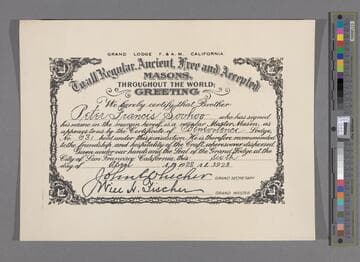 GRAND LODGE F. & A. M. CALIFORNIA
To all Regular, Ancient, Free and Accepted
MASONS,
THROUGHOUT THE WORLD;
GREETING
We hereby certify that Brother
Peter Francis Soohoo who has signed
his name in the margin hereof, is a regular Master Mason, as
appears to us by the Certificate of Benevolence Lodge,
No. 631 held under this jurisdiction. He is therefore recommended
to the friendship and hospitality of the Craft, wheresoever dispersed.
Given under our hands and the Seal of the Grand Lodge at the
City of San Francisco California, this sixth
day of A.D. 1923 A.L. 5923
John Whicher GRAND SECRETARY
Will H. Fischer GRAND MASTER